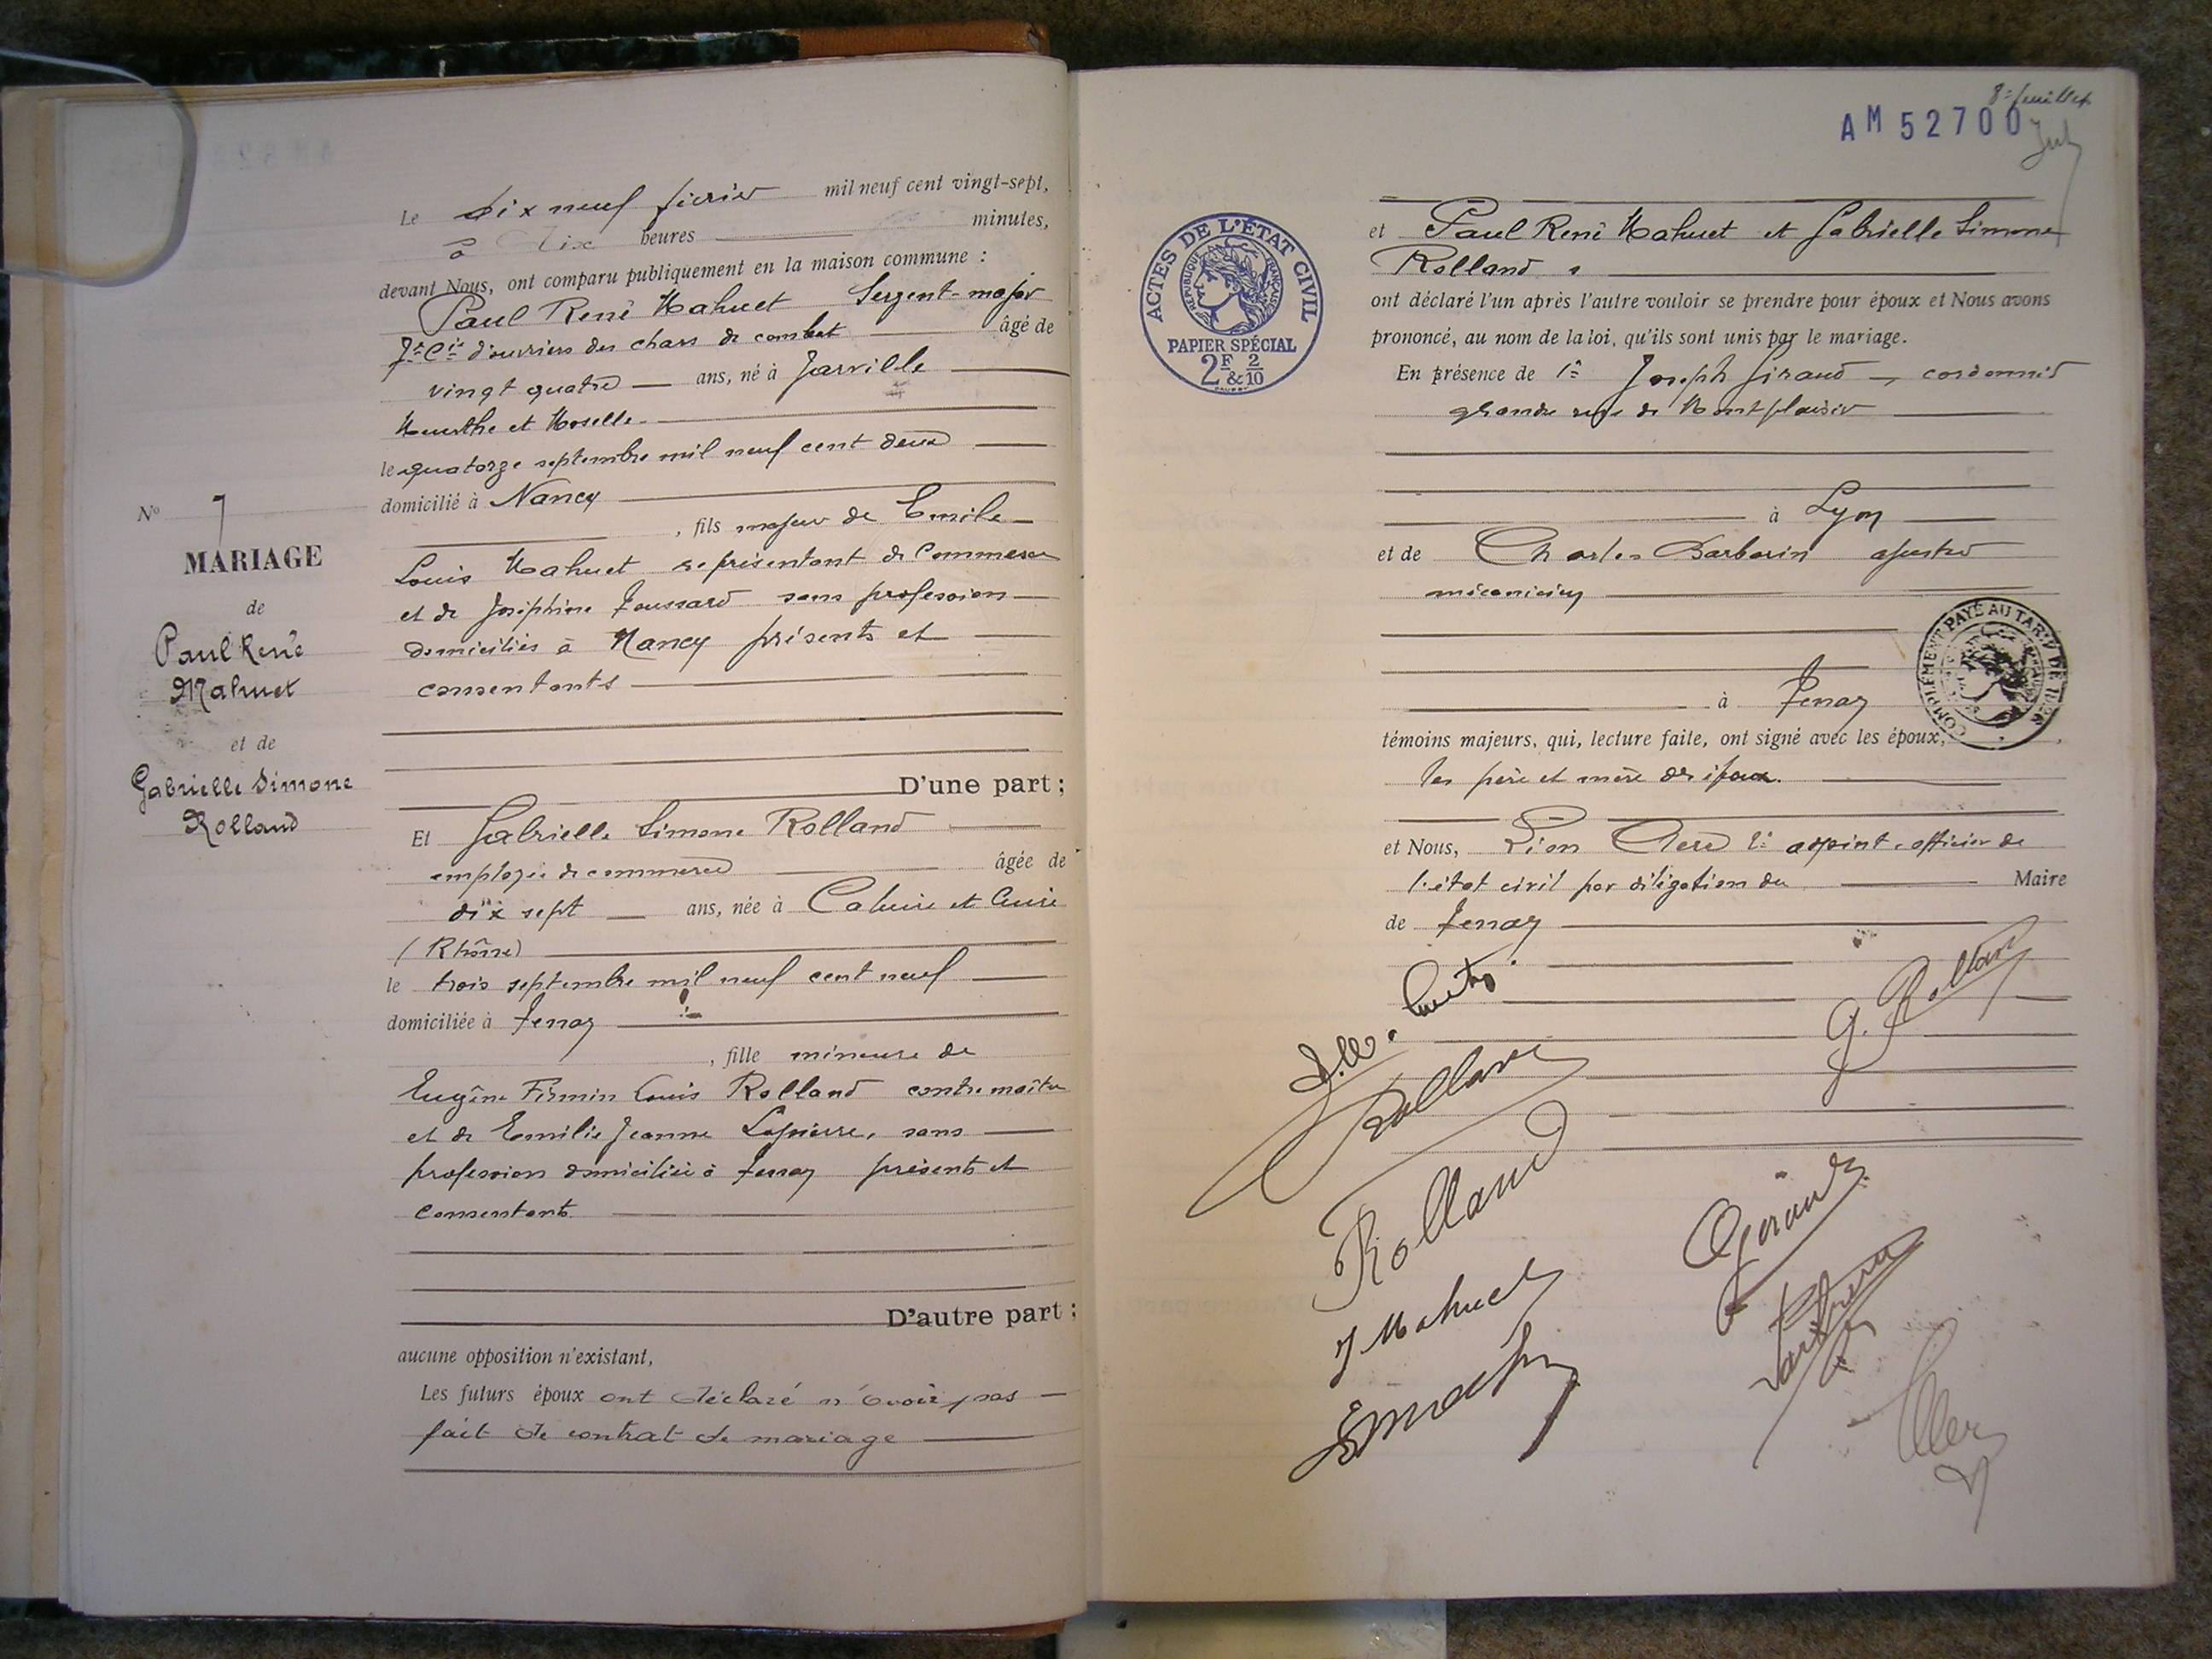 Le dix neuf février mil neuf cent vingt-sept,
à dix heures minutes,
devant Nous, ont comparu publiquement en la maison commune :
Paul René Mahuet Sergent-major
Cie d'ouvriers des chars de combat âgé de
vingt quatre ans, né à Jarville
Meurthe et Moselle
le quatorze septembre mil neuf cent deux
domicilié à Nancy
, fils majeur de Emile
Louis Mahuet représentant de Commerce
et de Joséphine Toussard sans profession
domiciliés à Nancy présents et
consentants
D'une part ;
Nº 7
MARIAGE
de
Paul René
Mahuet
et de
Gabrielle Simone
Rolland
Et Gabrielle Simone Rolland
employée de commerce âgée de
dix sept ans, née à Caluire et Cuire
(Rhône)
le trois septembre mil neuf cent neuf
domiciliée à Tenay
, fille mineure de
Eugène Firmin Louis Rolland contremaître
et de Emilie Jeanne Lapierre, sans
profession domiciliés à Tenay présents et
consentants
D'autre part :
aucune opposition n'existant,
Les futurs époux ont déclaré n'avoir pas
fait de contrat de mariage
8e feuillet
AM 52700
ACTES DE L'ÉTAT CIVIL
RÉPUBLIQUE FRANÇAISE
PAPIER SPÉCIAL
2F 2
&10
et Paul René Mahuet et Gabrielle Simone
Rolland
ont déclaré l'un après l'autre vouloir se prendre pour époux et Nous avons
prononcé, au nom de la loi, qu'ils sont unis par le mariage.
En présence de Joseph Giraud, cordonnier
grande rue de Montplaisir
à Lyon
et de Charles Barbarin ajusteur
mécanicien
COMPLÉMENT PAYÉ AU TARIF DE
à Tenay
témoins majeurs, qui, lecture faite, ont signé avec les époux,
les père et mère des époux.
et Nous, Léon Clerc 1er adjoint, officier de
l'état civil par délégation du Maire
de Tenay
G. Rolland
Rolland
Rolland
J Mahuet
Giraud